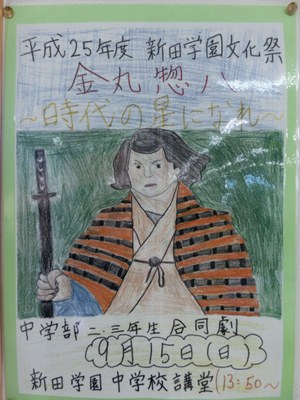 平成25年度 新田学園文化祭
金丸惣八
～時代の星になれ～
中学部二・三年生合同劇
9月15日(日)
新田学園中学校講堂(13:50～